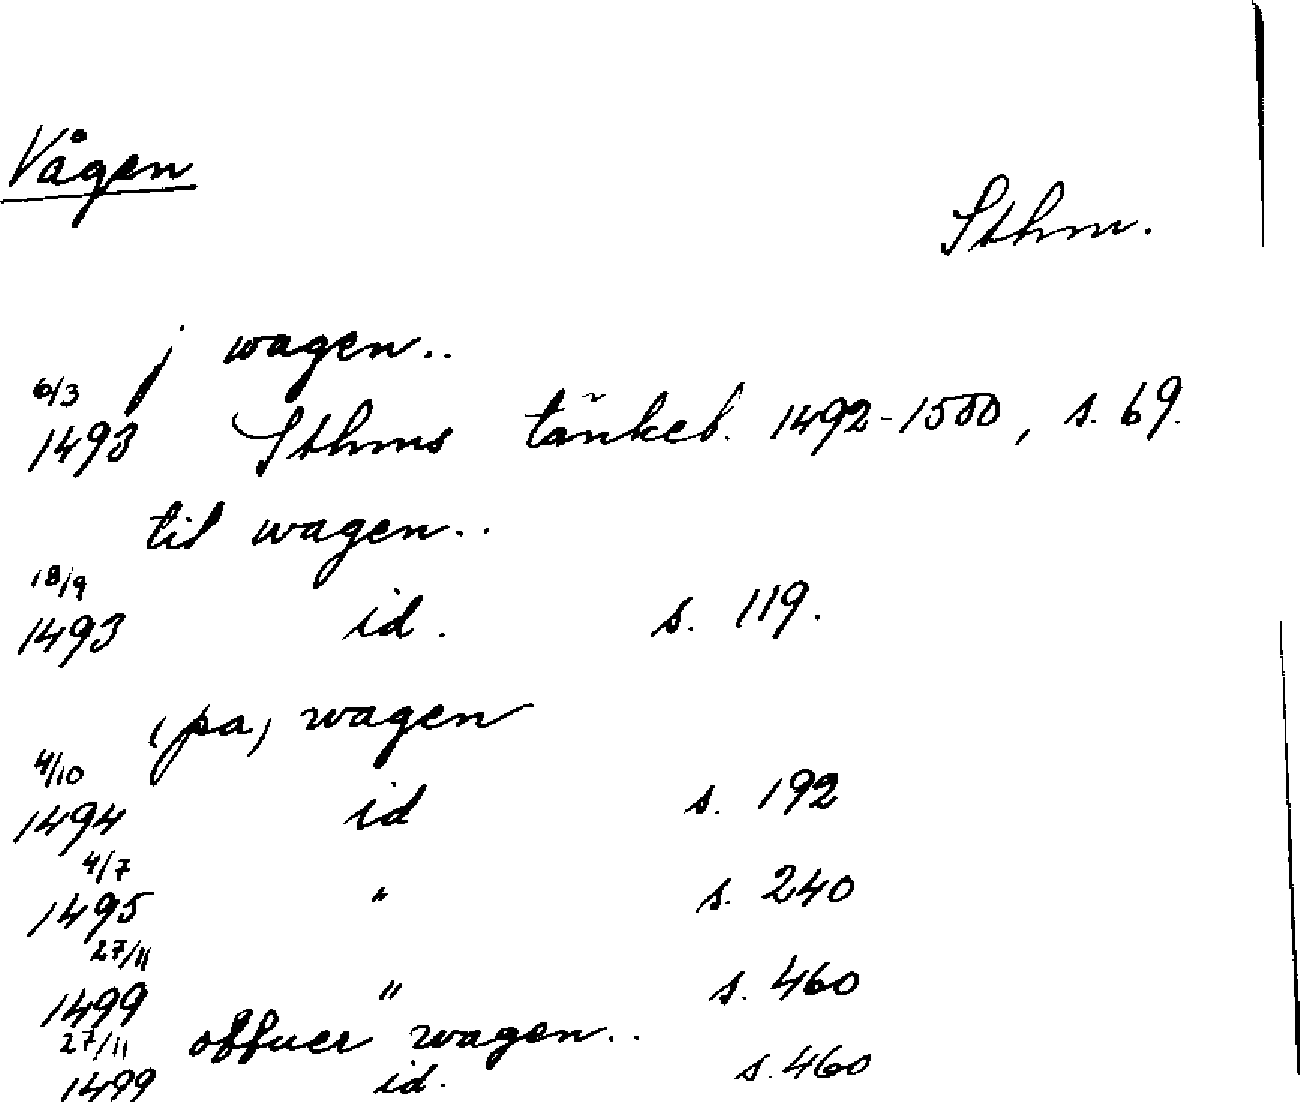 Vågen
Sthm.
j wagen..
6/3
1493 Sthms tänkeb. 1492-1500, s. 69.
til wagen..
18/9
1493 id. s. 119.
(pa) wagen
4/10
1494 id s. 192
4/7
1495 " s. 240
27/11
1499 " s. 460
offuer wagen..
27/11
1499 id. s. 460